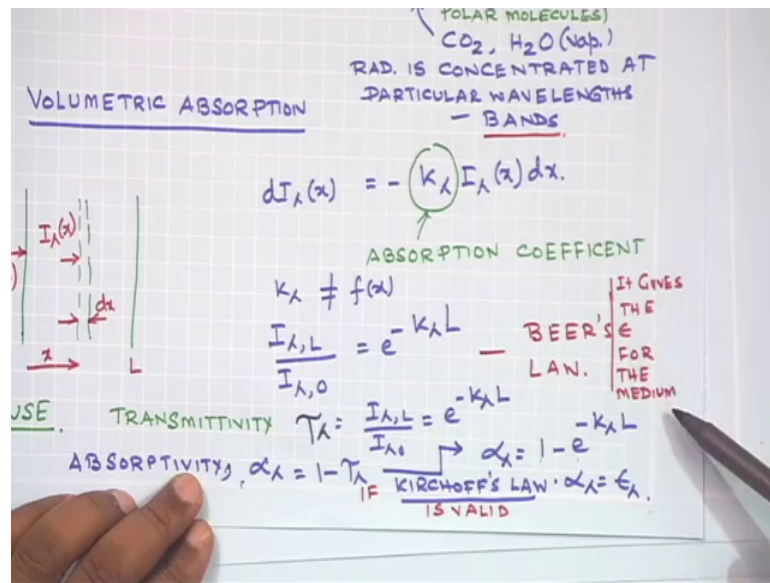 POLAR MOLECULES)
CO2, H2O (vap.)
RAD. IS CONCENTRATED AT
PARTICULAR WAVELENGTHS
- BANDS
VOLUMETRIC ABSORPTION
dIλ(x) = - Kλ Iλ(x) dx.
ABSORPTION COEFFICENT
Iλ(x)
dx
x
L
Kλ ≠ f(x)
Iλ,L / Iλ,0 = e^-KλL — BEER'S
LAW.
It GIVES
THE
ϵ
FOR
THE
MEDIUM
USE.
TRANSMITTIVITY τλ = Iλ,L / Iλ0 = e^-KλL
ABSORPTIVITY, αλ = 1 - τλ → αλ = 1 - e^-KλL
IF KIRCHOFF'S LAW · αλ = ϵλ.
IS VALID